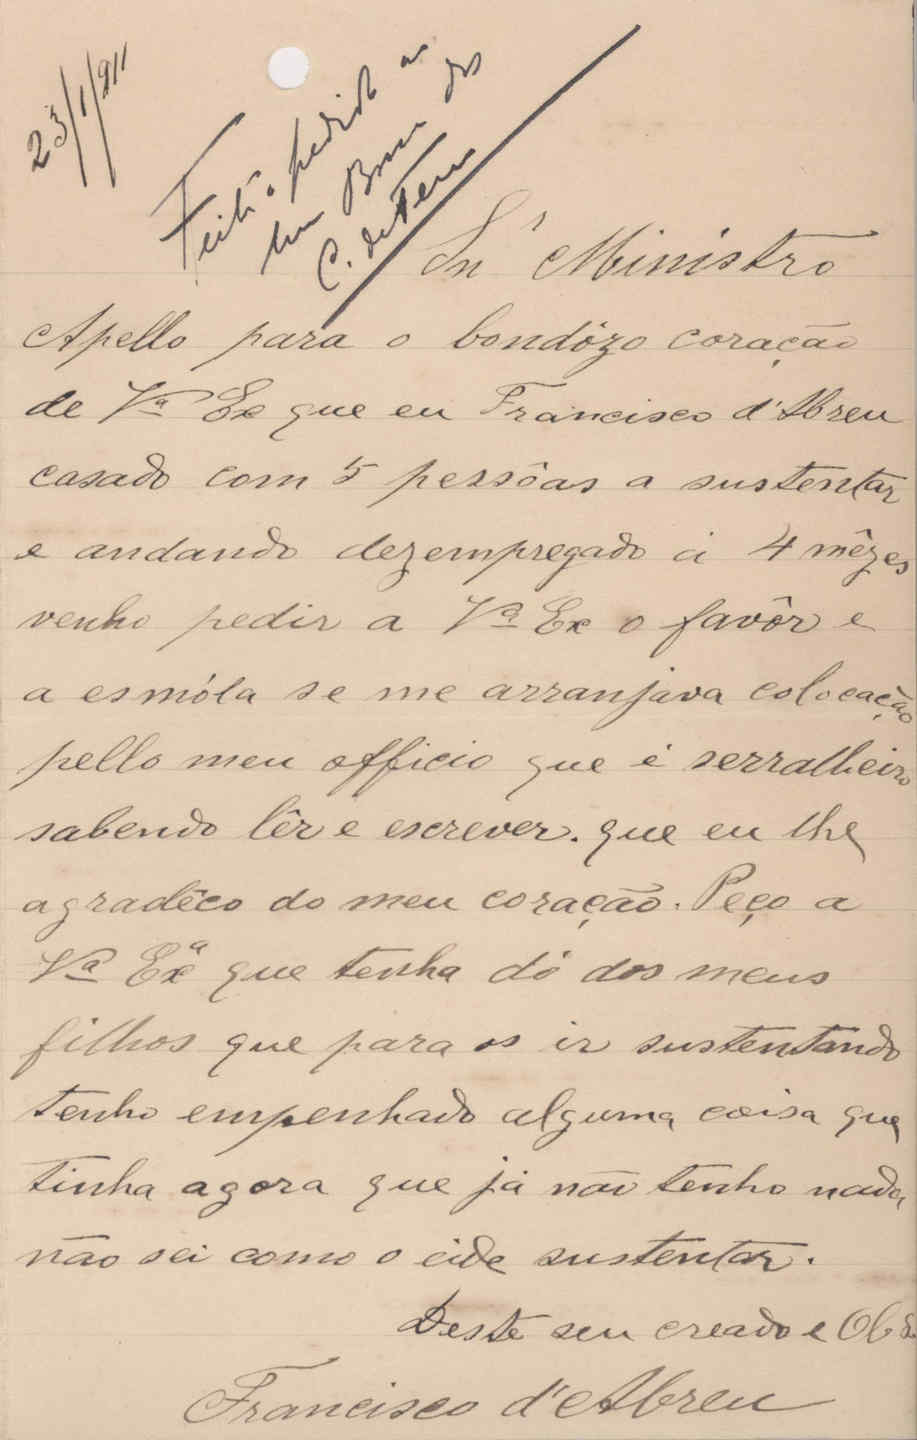 23/1/911
Feito o pedido ao
C. de Ferro
Snr Ministro
Apello para o bondôzo coração
de Vª Ex que eu Francisco d'Abreu
casado com 5 pessôas a sustentar
e andando dezempregado á 4 mêzes
venho pedir a Vª Ex o favôr e
a esmóla se me arranjava colocação
pello meu officio que é serralheiro
sabendo lêr e escrever. que eu lhe
agradêco do meu coração. Peço a
Vª Exª que tenha dó dos meus
filhos que para os ir sustentando
tenho empenhado alguma coisa que
tinha agora que já não tenho nada,
não sei como o eide sustentar.
Deste seu creado e Obg.
Francisco d'Abreu